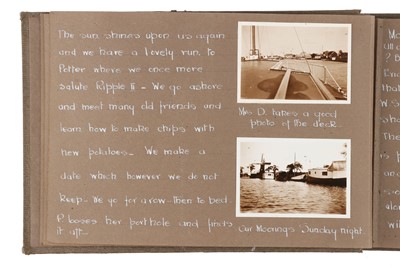 The sun shines upon us again
and we have a lovely run to
Potter where we once more
salute Ripple II - We go ashore
and meet many old friends and
learn how to make chips with
new potatoes. We make a
date which however we do not
keep - We go for a row - Then to bed
P. looses her porthole and finds
it aft.
Mr. D. takes a good
photo of the deck
Our Moorings Sunday night